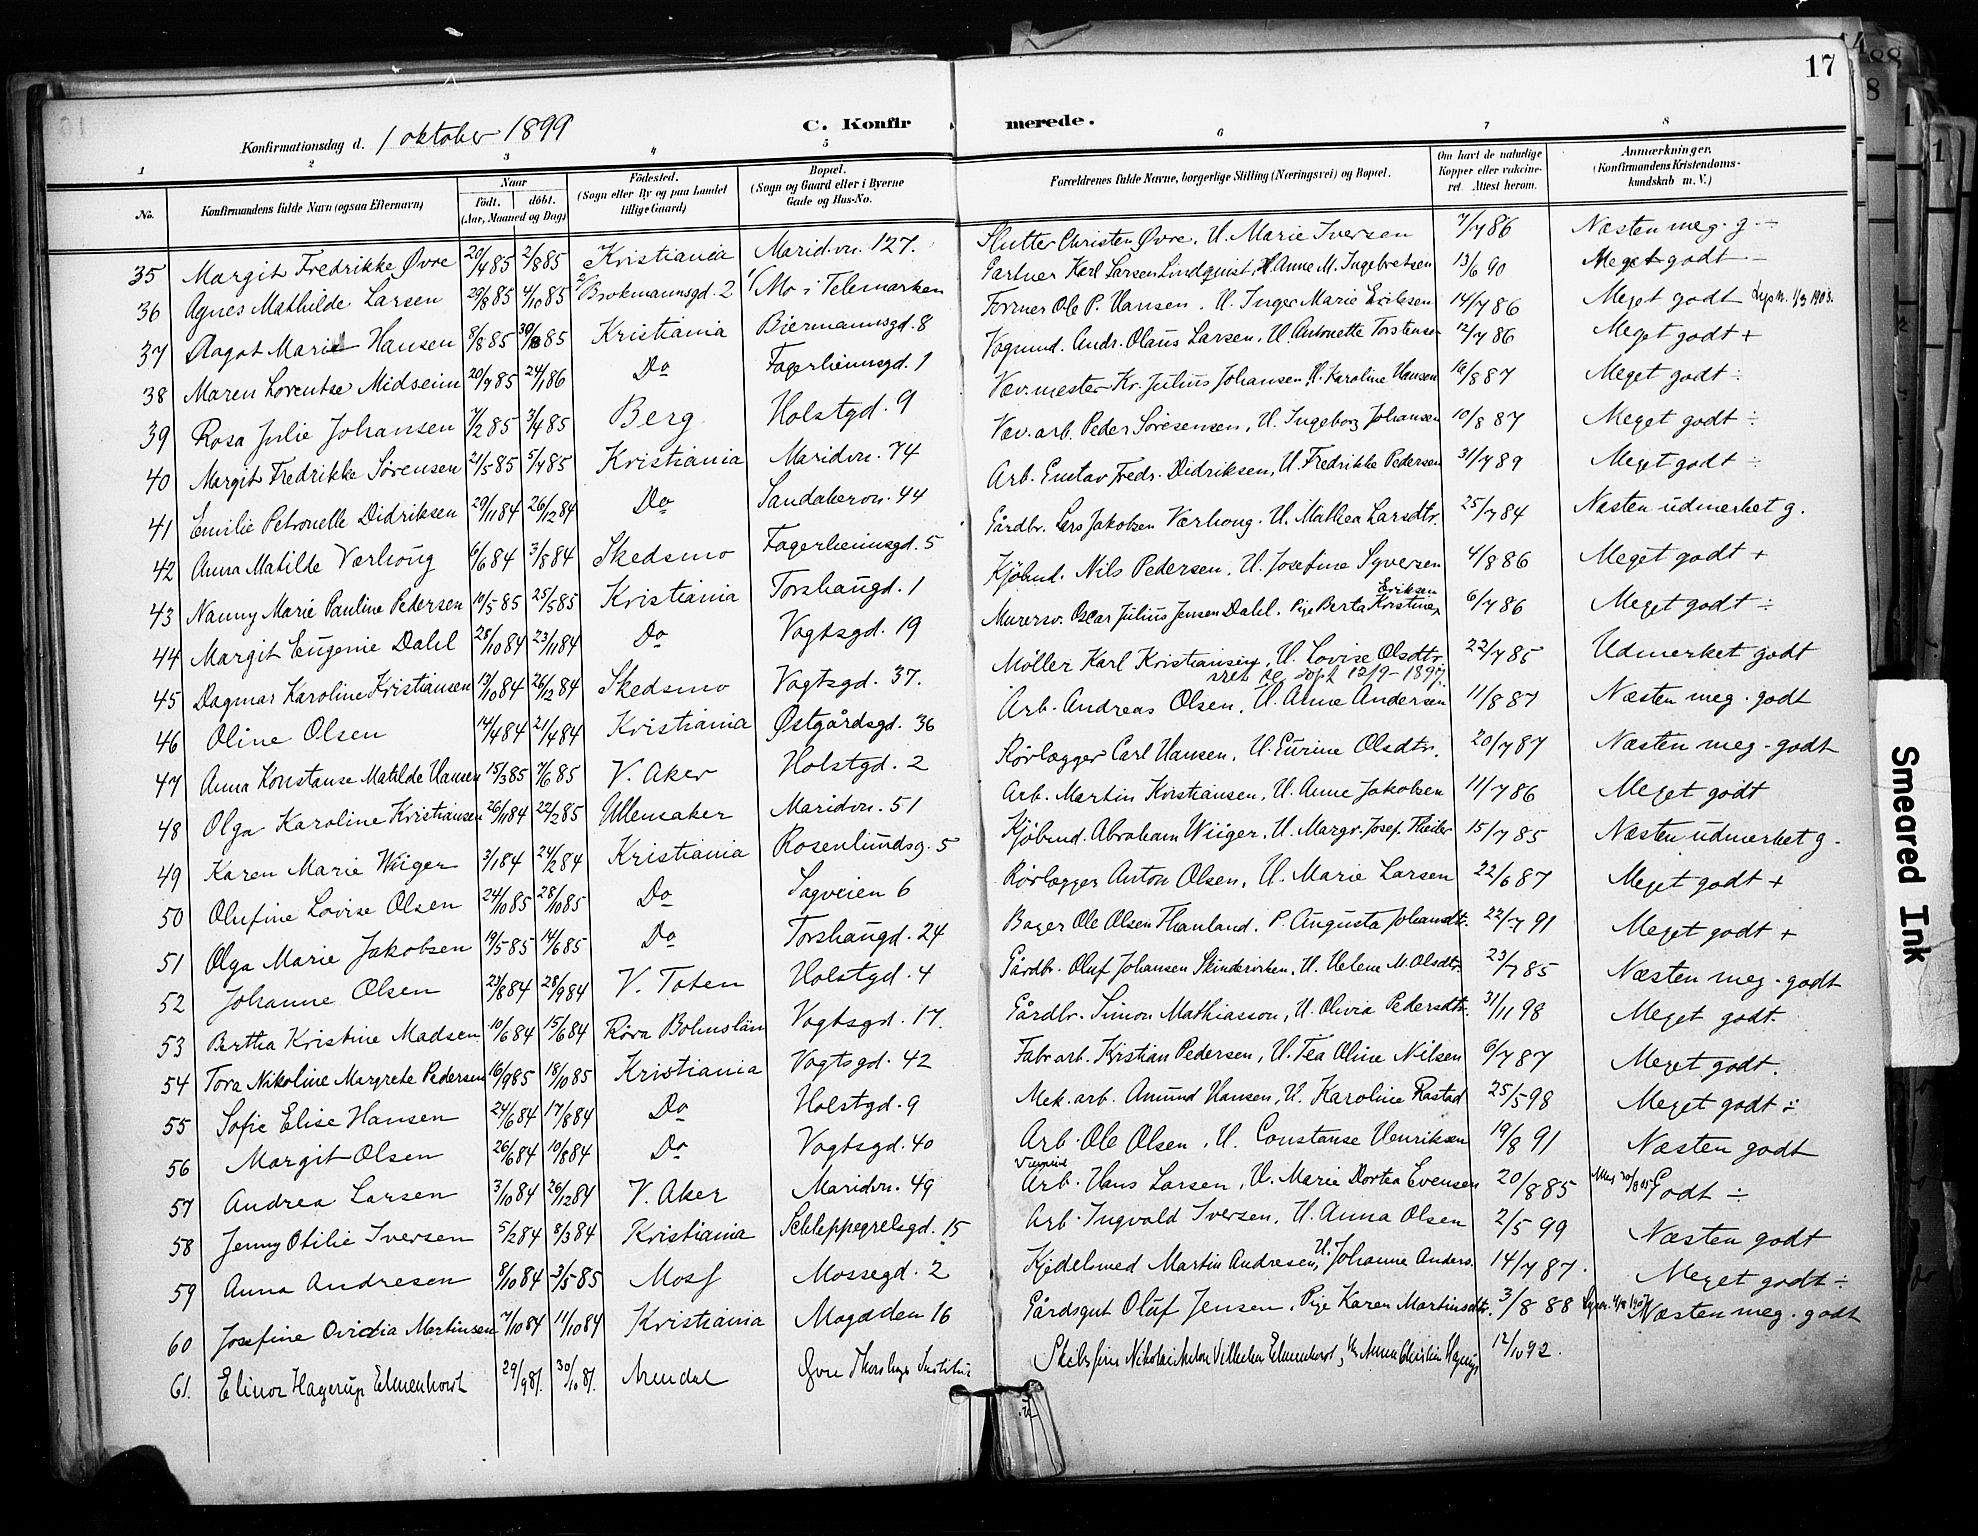 17
Konfirmationsdag d. 1 oktober 1899 C. Konfirmerede.
1 2 3 4 5 6 7 8
No. Konfirmandens fulde Navn (ogsaa Efternavn) Naar født. døbt. (Aar, Maaned og Dag) Fødested. (Sogn eller By og paa Landet tillige Gaard) Bopæl. (Sogn og Gaard eller i Byerne Gade og Hus-No. Forældrenes fulde Navne, borgerlige Stilling (Næringsvei) og Bopæl. Om havt de naturlige Kopper eller vaccineret. Attest herom. Anmærkninger. (Konfirmandens Kristendomskundskab m. V.)
35 Margit Fredrikke Øvre 20/4 85 2/8 85 Kristiania Maridvn. 127. Slutter Christen Øvre, H. Marie Iversen 7/7 86 Næsten meg. g. ÷
36 Agnes Mathilde Larsen 29/8 85 4/10 85 2/ Brokmannsgd. 2 1/ Mo i Telemarken Gartner Karl Larsen Lindquist, H. Anne M. Ingebretsen 13/6 90 Meget godt –
37 Aagot Marie Hansen 8/8 85 30/8 85 Kristiania Biermannsgd. 8 Former Ole P. Hansen. H. Inger Marie Eriksen 14/7 86 Meget godt
38 Maren Lorentse Midseim 20/7 85 24/1 86 Do Fagerheimsgd. 1 Vognmd. Andr. Olaus Larsen, H. Antonette Torstensen 12/7 86 Meget godt +
39 Rosa Julie Johansen 7/2 85 3/4 85 Berg Holstgd. 9 Væv.mester Kr. Julius Johansen, H. Karoline Hansen 16/8 87 Meget godt ÷
40 Margit Fredrikke Sørensen 21/5 85 5/7 85 Kristiania Maridvn. 74 Væv. arb. Peder Søresensen, H. Ingeborg Johansen 10/8 87 Meget godt ÷
41 Emilie Petronelle Didriksen 29/11 84 26/12 84 Do Sandakervn. 44 Arb. Gustav Fredr. Didriksen, H. Fredrikke Pedersen 31/7 89 Meget godt ÷
42 Anna Matilde Værhoug 6/6 84 3/8 84 Skedsmo Fagerheimsgd. 5 Gårdbr. Lars Jakobsen Værhoug. H. Mathea Larsdtr. 25/7 84 Næsten udmerket g.
43 Nanny Marie Pauline Pedersen 10/5 85 25/5 85 Kristiania Torshaugd. 1 Kjøbmd. Nils Pedersen, H. Josefine Syversen 4/8 86 Meget godt +
44 Margit Eugenie Dahl 28/10 84 23/11 84 Do Vogtsgd. 19 Murersv. Oscar Julius Jensen Dahl. Pige Berta Kristine Eriksen 6/7 86 Meget godt ÷
45 Dagmar Karoline Kristiansen 12/10 84 26/12 84 Skedsmo Vogtsgd. 37. Møller Karl Kristiansen, H. Lovise Olsdtr. 22/7 85 Udmerket godt
46 Oline Olsen 14/4 84 21/4 84 Kristiania Østgårdsgd. 36 Arb. Andreas Olsen, H. Anne Andersen 11/8 87 Næsten meg. godt
47 Anna Konstanse Matilde Hansen 15/3 85 7/6 85 V. Aker Holstgd. 2 Rørlægger Carl Hansen, H. Eurine Olsdtr. 20/7 87 Næsten meg. godt
48 Olga Karoline Kristiansen 26/11 84 22/2 85 Ullensaker Maridvn. 51 Arb. Martin Kristiansen, H. Anne Jakobsen 11/7 86 Meget godt
49 Karen Marie Wiiger 3/1 84 24/2 84 Kristiania Rosenlundsg. 5 Kjøbmd. Abraham Wiiger, H. Margr. Josef. Theiler 15/7 85 Næsten udmerket g.
50 Olufine Lovise Olsen 24/10 85 28/10 85 Do Sagveien 6 Rørlægger Anton Olsen, H. Marie Larsen 22/6 87 Meget godt +
51 Olga Marie Jakobsen 19/5 85 14/6 85 Do Torshaugd. 24 Bager Ole Olsen Thanland. P. Augusta Johansdtr. 22/7 91 Meget godt +
52 Johanne Olsen 23/8 84 28/9 84 V. Toten Holstgd. 4 Gårdbr. Oluf Johansen Skinderviken, H. Helene M. Olsdtr. 23/7 85 Næsten meg. godt
53 Bertha Kristine Madsen 10/6 84 15/6 84 Röra Bohuslän Vogtsgd. 17. Gårdbr. Simon Mathiasson, H. Olivia Pedersdtr. 31/11 98 Meget godt.
54 Tora Nikoline Margrete Pedersen 16/9 85 18/10 85 Kristiania Vogtsgd. 42 Fabr arb. Kristian Pedersen, H. Tea Oline Nilsen 6/7 87 Meget godt.
55 Sofie Elise Hansen 24/6 84 17/8 84 Do Holstgd. 9 Mek. arb. Amund Hansen, H. Karoline Rastad 25/5 98 Meget godt ÷
56 Margit Olsen 26/6 84 10/8 84 Do Vogtsgd. 40 Arb. Ole Olsen, H. Constanse Henriksen 19/8 91 Næsten godt
57 Andrea Larsen 3/10 84 26/12 84 V. Aker Maridvn. 49 Arb. Hans Larsen, H. Marie Dortea Evensen 20/8 85 Godt ÷
58 Jenny Otilie Iversen 5/2 84 8/3 84 Kristiania Schleppegrelsgd. 15 Arb. Ingvald Iversen, H. Anna Olsen 2/5 99 Næsten godt
59 Anna Andresen 8/10 84 3/5 85 Moss Mossegd. 2 Kjedelsmed Martin Andresen, H. Johanne Anders. 14/7 87. Meget godt ÷
60 Josefine Ovidia Martinsen 7/10 84 11/10 84 Kristiania Mogaden 16 Gårdsgut Oluf Jensen, Pige Karen Martinsdtr. 3/8 88 Næsten meg. godt
61. Elinor Hagerup Elmenhorst 29/9 81. 30/10 81. Arendal Øvre Institut Skibsfører Nikolai Anton Vilhelm Elmenhorst, H. Anna Christin 12/10 92.
Smeared Ink